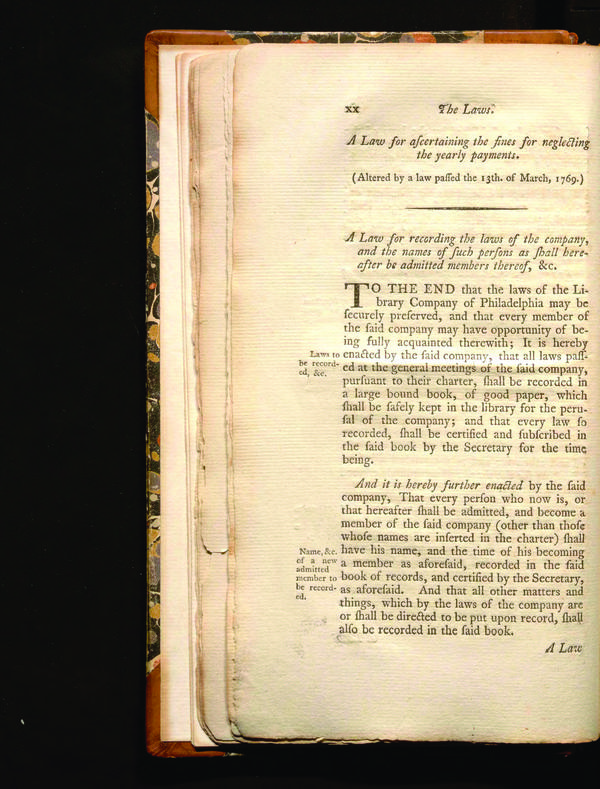 xx The Laws.
A Law for aſcertaining the fines for neglecting
the yearly payments.
(Altered by a law paſſed the 13th. of March, 1769.)
A Law for recording the laws of the company,
and the names of ſuch perſons as ſhall here-
after be admitted members thereof, &c.
TO THE END that the laws of the Li-
brary Company of Philadelphia may be
ſecurely preſerved, and that every member of
the ſaid company may have opportunity of be-
ing fully acquainted therewith; It is hereby
Laws to
be record-
ed, &c.
enacted by the ſaid company, that all laws paſſ-
ed at the general meetings of the ſaid company,
purſuant to their charter, ſhall be recorded in
a large bound book, of good paper, which
ſhall be ſafely kept in the library for the peru-
ſal of the company; and that every law ſo
recorded, ſhall be certified and ſubſcribed in
the ſaid book by the Secretary for the time
being.
And it is hereby further enacted by the ſaid
company, That every perſon who now is, or
that hereafter ſhall be admitted, and become a
member of the ſaid company (other than thoſe
whoſe names are inſerted in the charter) ſhall
Name, &c.
of a new
admitted
member to
be record-
ed.
have his name, and the time of his becoming
a member as aforeſaid, recorded in the ſaid
book of records, and certified by the Secretary,
as aforeſaid. And that all other matters and
things, which by the laws of the company are
or ſhall be directed to be put upon record, ſhall
alſo be recorded in the ſaid book.
A Law